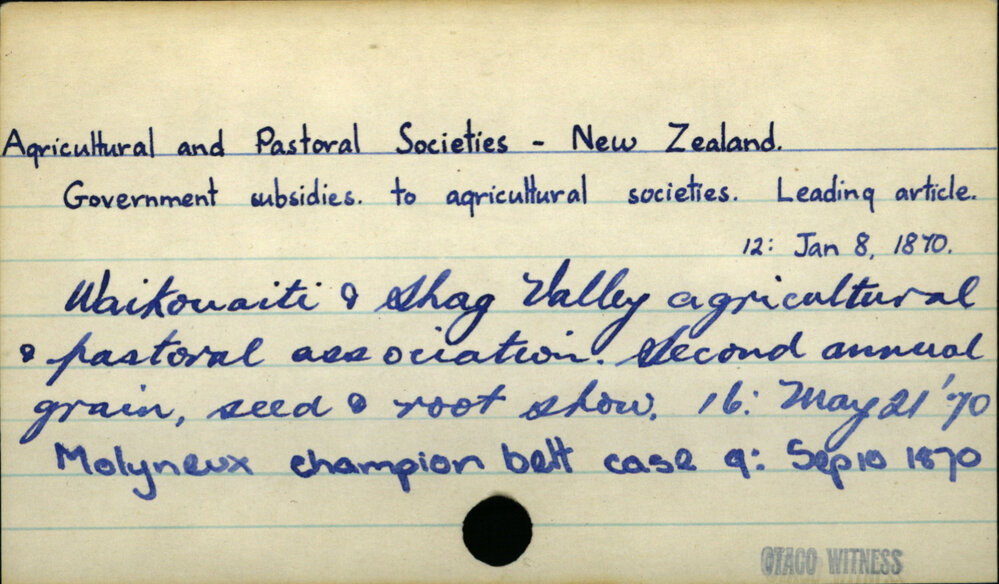 Agricultural and Pastoral Societies - New Zealand.
Government subsidies. to agricultural societies. Leading article.
12: Jan 8, 1870.
Waikouaiti & Shag Valley agricultural
& pastoral association. Second annual
grain, seed & root show. 16: May 21 '70
Molyneux champion belt case 9: Sep 10 1870
OTAGO WITNESS